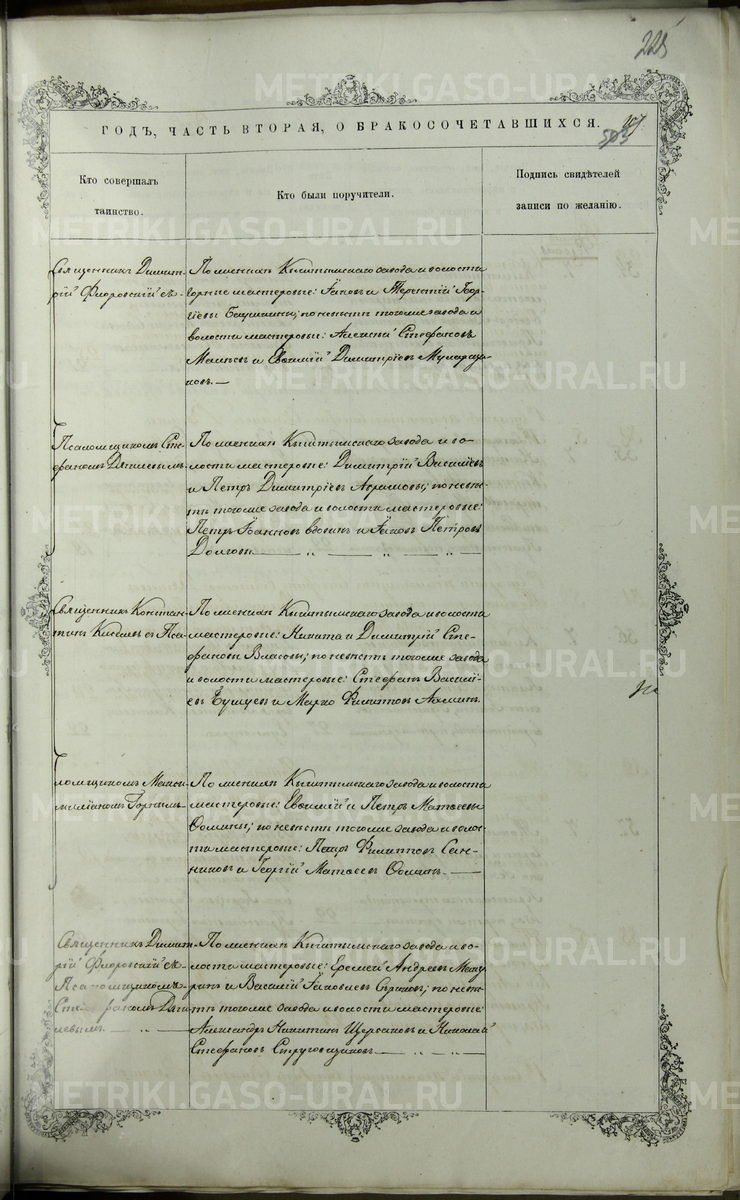 225
ГОДЪ, ЧАСТЬ ВТОРАЯ, О БРАКОСОЧЕТАВШИХСЯ.
503
Кто совершалъ
таинство.
Кто были поручители.
Подпись свидѣтелей
записи по желанію.
Священникъ Димит-
рій Флоровскій съ
По женихѣ Кыштымскаго завода и волости
горные мастеровые: Іаковъ и Терентій Геор-
гіевы ; по невѣстѣ тогоже завода и
волости мастеровые: Алексѣй Стефановъ
и Евѳимій Димитріевъ
Псаломщикомъ Сте-
фаномъ Дягилевымъ
По женихѣ Кыштымскаго завода и во-
лости мастеровые: Димитрій Василіевъ
и Петръ Димитріевъ Абрамовы; по невѣс-
тѣ тогоже завода и волости мастеровые:
Петръ Іоанновъ Вдовинъ и Іаковъ Петровъ
Долговъ
Священникъ Констан-
тинъ съ Пса-
По женихѣ Кыштымскаго завода и волости
мастеровые: Никита и Димитрій Сте-
фановы Власовы; по невѣстѣ тогоже завода
и волости мастеровые: Стефанъ Василі-
евъ и Марко Филипповъ
ломщикомъ Макси-
миліаномъ Горнымъ
По женихѣ Кыштымскаго завода и волости
мастеровые: Евѳимій и Петръ Матвеевы
Ѳомины; по невѣстѣ тогоже завода и волос-
ти мастеровые: Петръ Филипповъ Сан-
никовъ и Георгій Матвеевъ Ѳоминъ.
Священникъ Димит-
рій Флоровскій съ
Псаломщикомъ
Стефаномъ Дяги-
левымъ
По женихѣ Кыштымскаго завода и во-
лости мастеровые: Еремей Андреевъ
и Василій Іаковлевъ ; по невѣс-
тѣ тогоже завода и волости мастеровые:
Александръ Никитинъ Щербаковъ и Николай
Стефановъ Струговщиковъ
METRIKI.GASO-URAL.RU